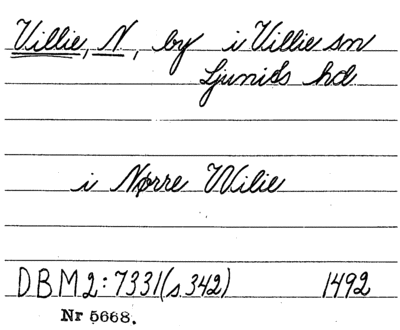 Villie, N, by i Villie sn
Ljunids hd
i Nørre Wilie
DBM2:7331(s 342) 1492
Nr 5668.